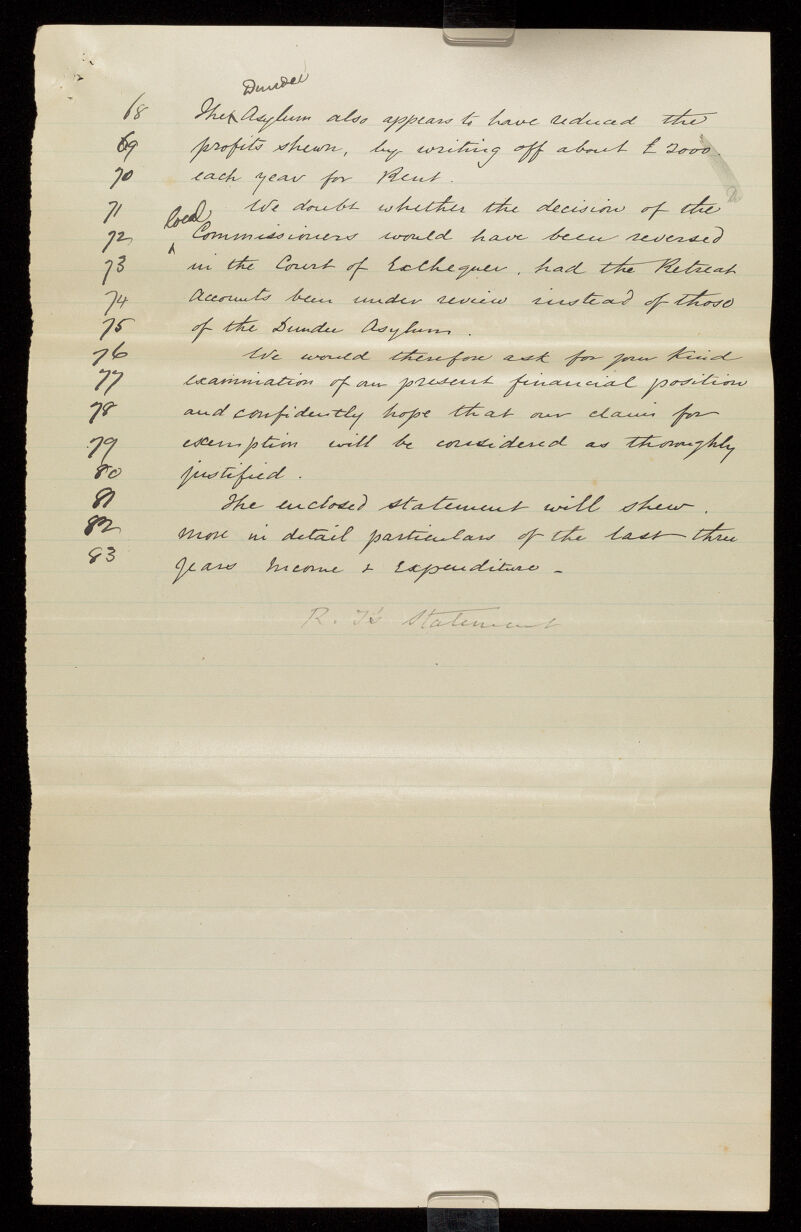 Dundee
68 The Asylum also appears to have reduced the
69 profits shewn, by writing off about £ 2000
70 each year for Rent.
71 We doubt whether the decision of the
local
72 Commissioners would have been reversed
73 in the Court of Exchequer, had the Retreat
74 Accounts been under review instead of those
75 of the Dundee Asylum.
76 We would therefore ask for your kind
77 examination of our present financial position
78 and confidently hope that our claim for
79 exemption will be considered as thoroughly
80 justified.
81 The enclosed statement will shew.
82 more in detail particulars of the last three
83 years Income & Expenditure -
R. T's Statement